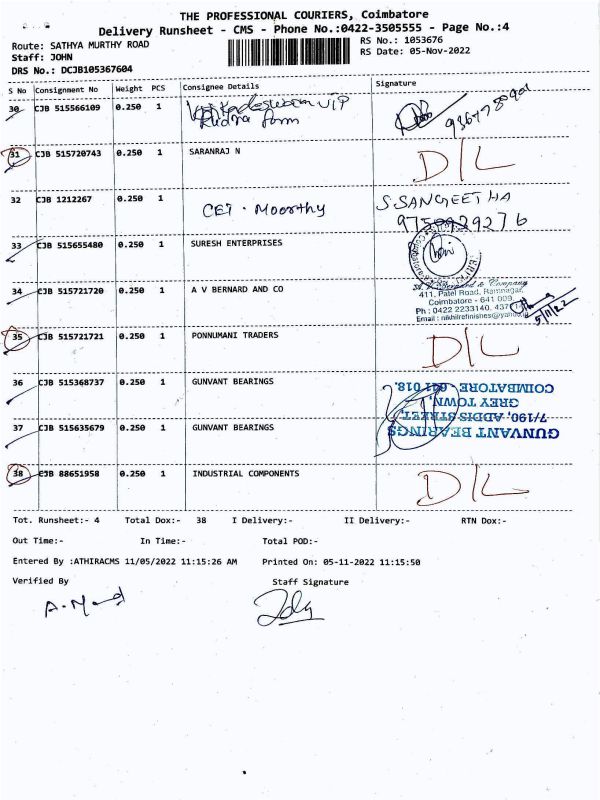 THE PROFESSIONAL COURIERS, Coimbatore
Delivery Runsheet - CMS - Phone No.:0422-3505555 - Page No.:4
Route: SATHYA MURTHY ROAD
RS No.: 1053676
Staff: JOHN
RS Date: 05-Nov-2022
DRS No.: DCJB105367604
S No Consignment No Weight PCS Consignee Details Signature
30 CJB 515566109 0.250 1 VIP
31 CJB 515720743 0.250 1 SARANRAJ N D/L
32 CJB 1212267 0.250 1 CET. Moorthy S. SANGEETHA
33 CJB 515655480 0.250 1 SURESH ENTERPRISES
34 CJB 515721720 0.250 1 A V BERNARD AND CO
411, Patel Road, Ramnagar,
Coimbatore - 641 009.
Ph : 0422 2233140, 437
Email : nikhilrefinishes@yahoo
5/11/22
35 CJB 515721721 0.250 1 PONNUMANI TRADERS D/L
36 CJB 515368737 0.250 1 GUNVANT BEARINGS
37 CJB 515635679 0.250 1 GUNVANT BEARINGS
GUNVANT BEARINGS
7/190, ADDIS STREET,
GREY TOWN,
COIMBATORE - 641 018.
38 CJB 88651958 0.250 1 INDUSTRIAL COMPONENTS D/L
Tot. Runsheet:- 4 Total Dox:- 38 I Delivery:- II Delivery:- RTN Dox:-
Out Time:- In Time:- Total POD:-
Entered By :ATHIRACMS 11/05/2022 11:15:26 AM Printed On: 05-11-2022 11:15:50
Verified By Staff Signature